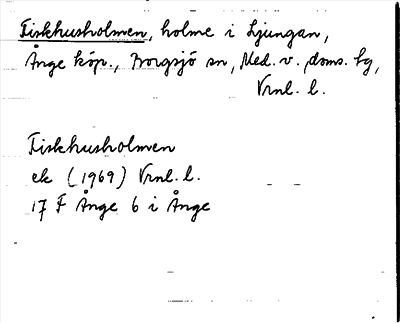 Fiskhusholmen, holme i Ljungan,
Ånge köp., Borgsjö sn, Med. v. doms. tg,
Vrnl. l.
Fiskhusholmen
ek (1969) Vrnl. l.
17 F Ånge 6 i Ånge